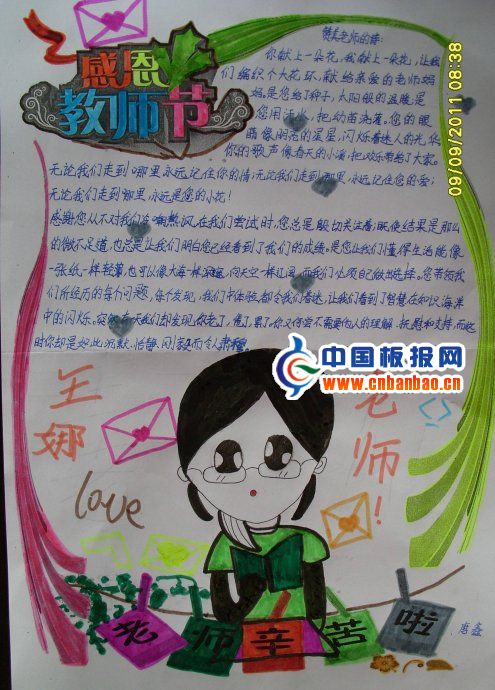 感恩
教师节
赞美老师的诗:
你献上一朵花,我献上一朵花,让我
们编织个大花环,献给亲爱的老师妈
妈。是您给了种子,太阳般的温暖是
您用活水,把幼苗浇灌。您的眼
睛像明亮的星星,闪烁着迷人的光华
你的歌声像春天的小溪,把欢乐带给了大家。
无论我们走到哪里,永远记住你的情;无论我们走到那里,永远记住您的爱;
无论我们走到哪里,永远是您的小花!
感谢您从不对我们在嘲热讽,在我们尝试时,您总是殷切关注着;既使结果是那么
的微不足道,也总是让我们明白您已经看到了我们的成绩。是您让我们懂得生活能像
一张纸一样轻薄,也可以像大海一样深邃,向天空一样辽阔,而我们必须自己做出选择。您带领我
们所经历的每个问题,每个发现,我们中体验都令我们着迷,让我们看到了智慧在知识海洋
中的闪烁。突然有天我们却发现,你老了,倦了,累了,你又何尝不需要他人的理解、抚慰和支持,而此
时你却是如此沉默、恬静、刚毅而令人肃穆。
王娜
老师!
love
老师辛苦啦
唐鑫
中国板报网
www.cnbanbao.cn
09/09/2011 08:38